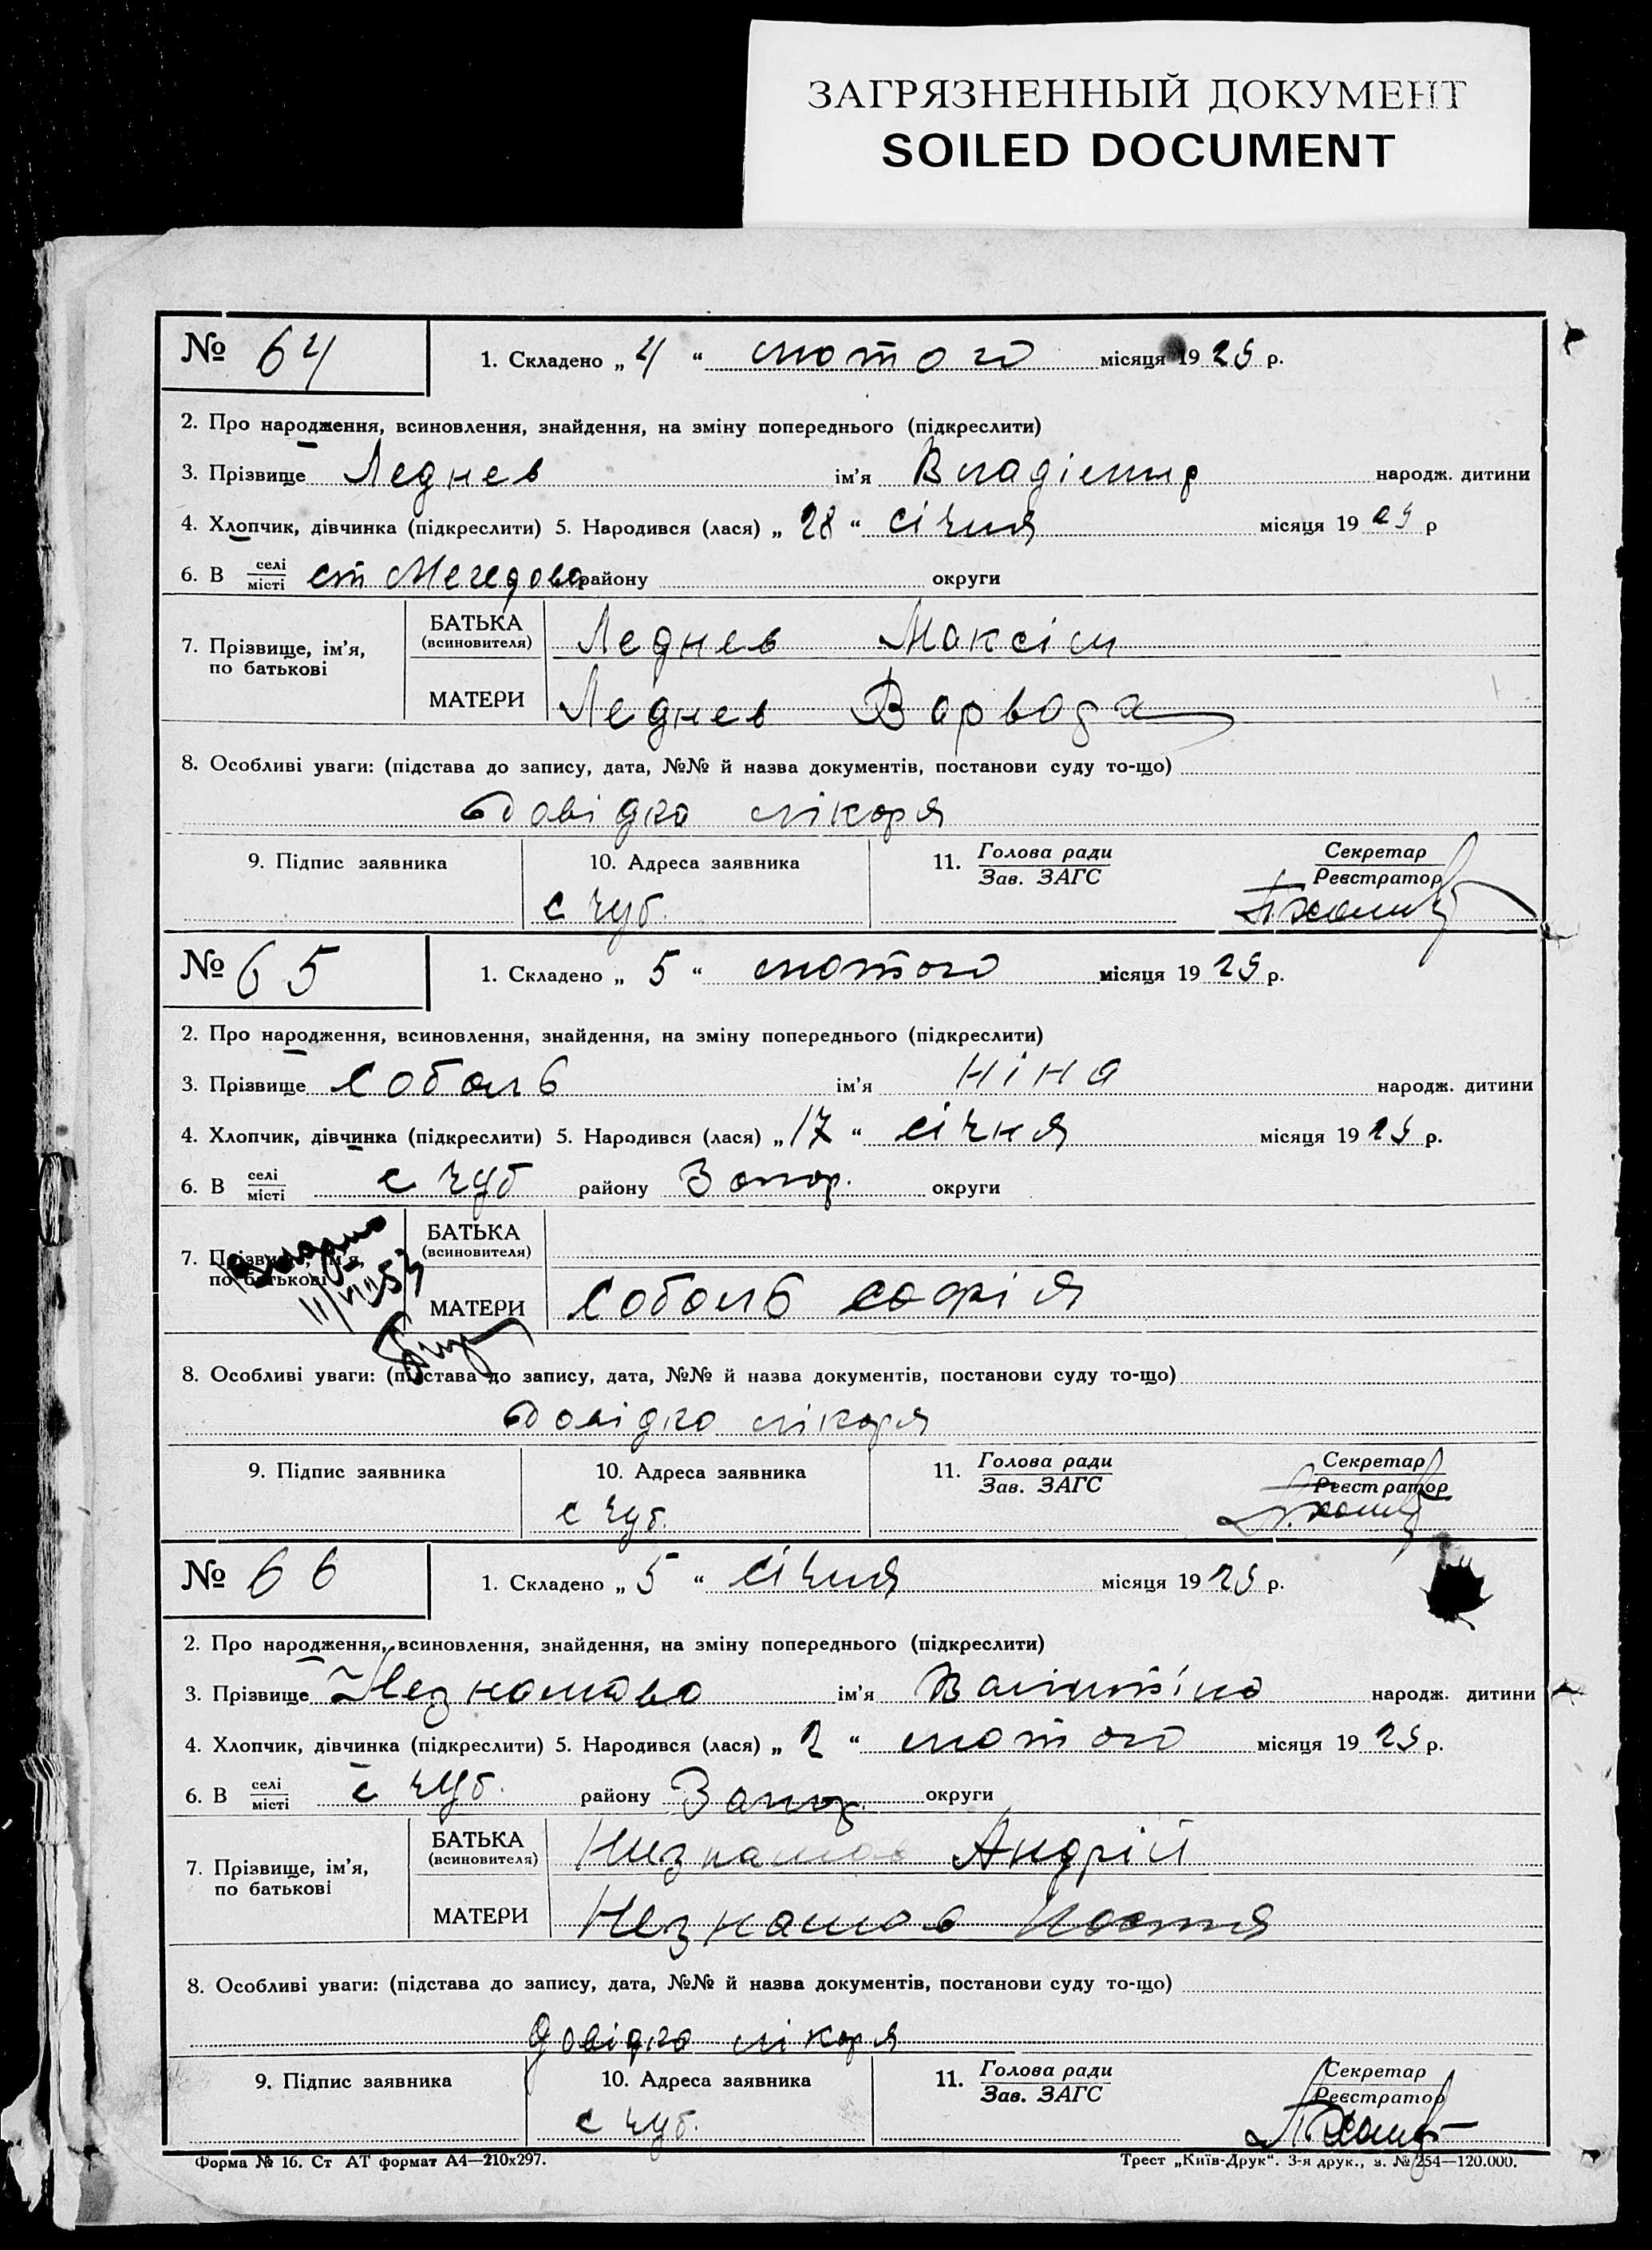 ЗАГРЯЗНЕННЫЙ ДОКУМЕНТ
SOILED DOCUMENT
№ 64
1. Складено „ 4 “ лютого місяця 1929 р.
2. Про народження, всиновлення, знайдення, на зміну попереднього (підкреслити)
3. Прізвище Леднев ім'я Владімир народж. дитини
4. Хлопчик, дівчинка (підкреслити) 5. Народився (лася) „ 28 “ січня місяця 1929 р
6. В селі/місті ст району округи
7. Прізвище, ім'я, по батькові
БАТЬКА (всиновителя) Леднев Максім
МАТЕРИ Леднев
8. Особливі уваги: (підстава до запису, дата, №№ й назва документів, постанови суду то-що)
Довідка лікаря
9. Підпис заявника 10. Адреса заявника 11. Голова ради/Зав. ЗАГС Секретар/Реєстратор
с Чуб.
№ 65
1. Складено „ 5 “ лютого місяця 1929 р.
2. Про народження, всиновлення, знайдення, на зміну попереднього (підкреслити)
3. Прізвище Соболь ім'я Ніна народж. дитини
4. Хлопчик, дівчинка (підкреслити) 5. Народився (лася) „ 17 “ січня місяця 1929 р.
6. В селі/місті с Чуб району Запор. округи
7. Прізвище, ім'я, по батькові
БАТЬКА (всиновителя)
МАТЕРИ Соболь Софія
8. Особливі уваги: (підстава до запису, дата, №№ й назва документів, постанови суду то-що)
Довідка лікаря
9. Підпис заявника 10. Адреса заявника 11. Голова ради/Зав. ЗАГС Секретар/Реєстратор
с Чуб.
№ 66
1. Складено „ 5 “ січня місяця 1929 р.
2. Про народження, всиновлення, знайдення, на зміну попереднього (підкреслити)
3. Прізвище Незнамава ім'я народж. дитини
4. Хлопчик, дівчинка (підкреслити) 5. Народився (лася) „ 2 “ лютого місяця 1929 р.
6. В селі/місті с Чуб. району Запор. округи
7. Прізвище, ім'я, по батькові
БАТЬКА (всиновителя) Незнамов Андрій
МАТЕРИ Незнамов
8. Особливі уваги: (підстава до запису, дата, №№ й назва документів, постанови суду то-що)
довідка лікаря
9. Підпис заявника 10. Адреса заявника 11. Голова ради/Зав. ЗАГС Секретар/Реєстратор
с Чуб.
Форма № 16. Ст АТ формат А4—210х297. Трест „Київ-Друк“. 3-я друк., з. № 254—120.000.